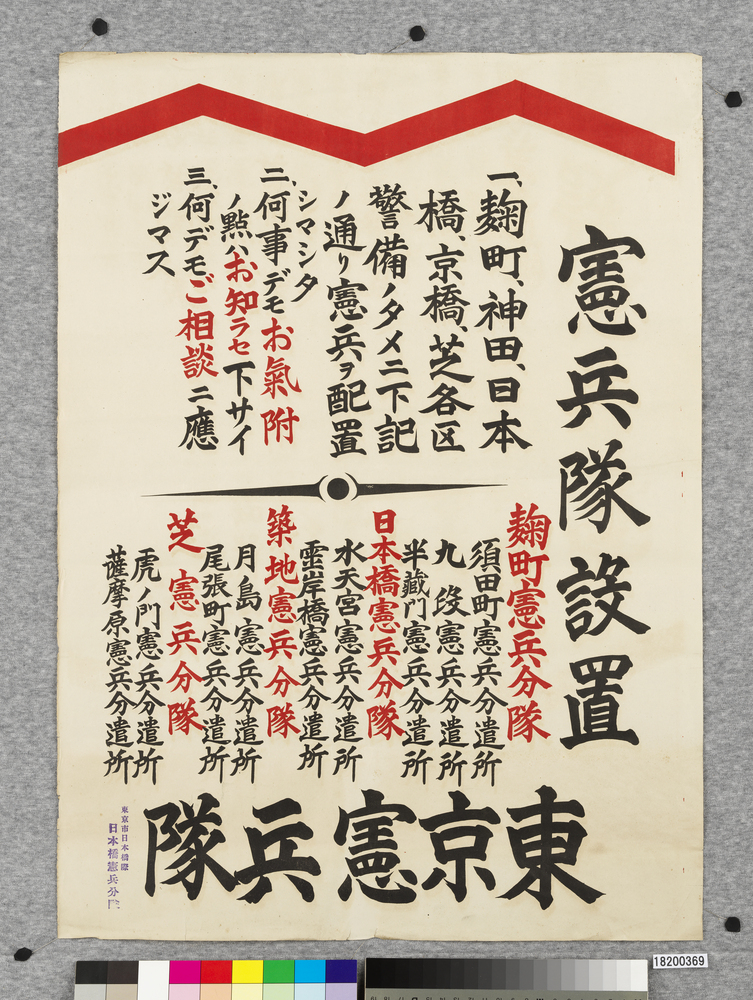 憲兵隊設置
一、麹町、神田、日本
橋、京橋、芝各区
警備ノタメニ下記
ノ通り憲兵ヲ配置
シマシタ
二、何事デモお氣附
ノ點ハお知ラセ下サイ
三、何デモご相談ニ應
ジマス
麹町憲兵分隊
須田町憲兵分遣所
九段憲兵分遣所
半藏門憲兵分遣所
日本橋憲兵分隊
水天宮憲兵分遣所
霊岸橋憲兵分遣所
築地憲兵分隊
月島憲兵分遣所
尾張町憲兵分遣所
芝憲兵分隊
虎ノ門憲兵分遣所
薩摩原憲兵分遣所
東京憲兵隊
東京市日本橋際
日本橋憲兵分隊
18200369